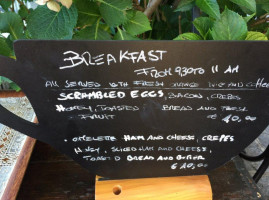 BREAKFAST
FROM 9:30 TO 11 AM
ALL SERVED WITH FRESH ORANGE AND COFFEE
SCRAMBLED EGGS, BACON, CREPES
HONEY, TOASTED BREAD AND FRESH
FRUIT € 10,00
• OMELETTE HAM AND CHEESE, CREPES
HONEY, SLICED HAM AND CHEESE,
TOASTED BREAD AND BUTTER
€ 10,00